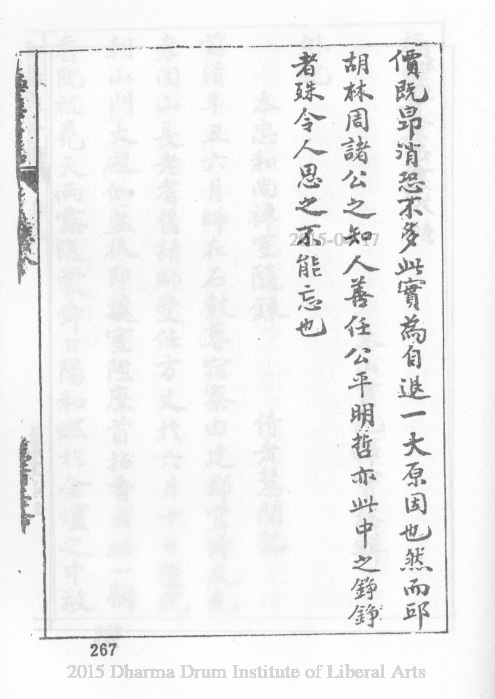 價既昂消恐不多此實為自退一大原因也然而邱
胡林周諸公之知人善任公平明哲亦此中之錚錚
者殊令人思之不能忘也
267
2015 Dharma Drum Institute of Liberal Arts